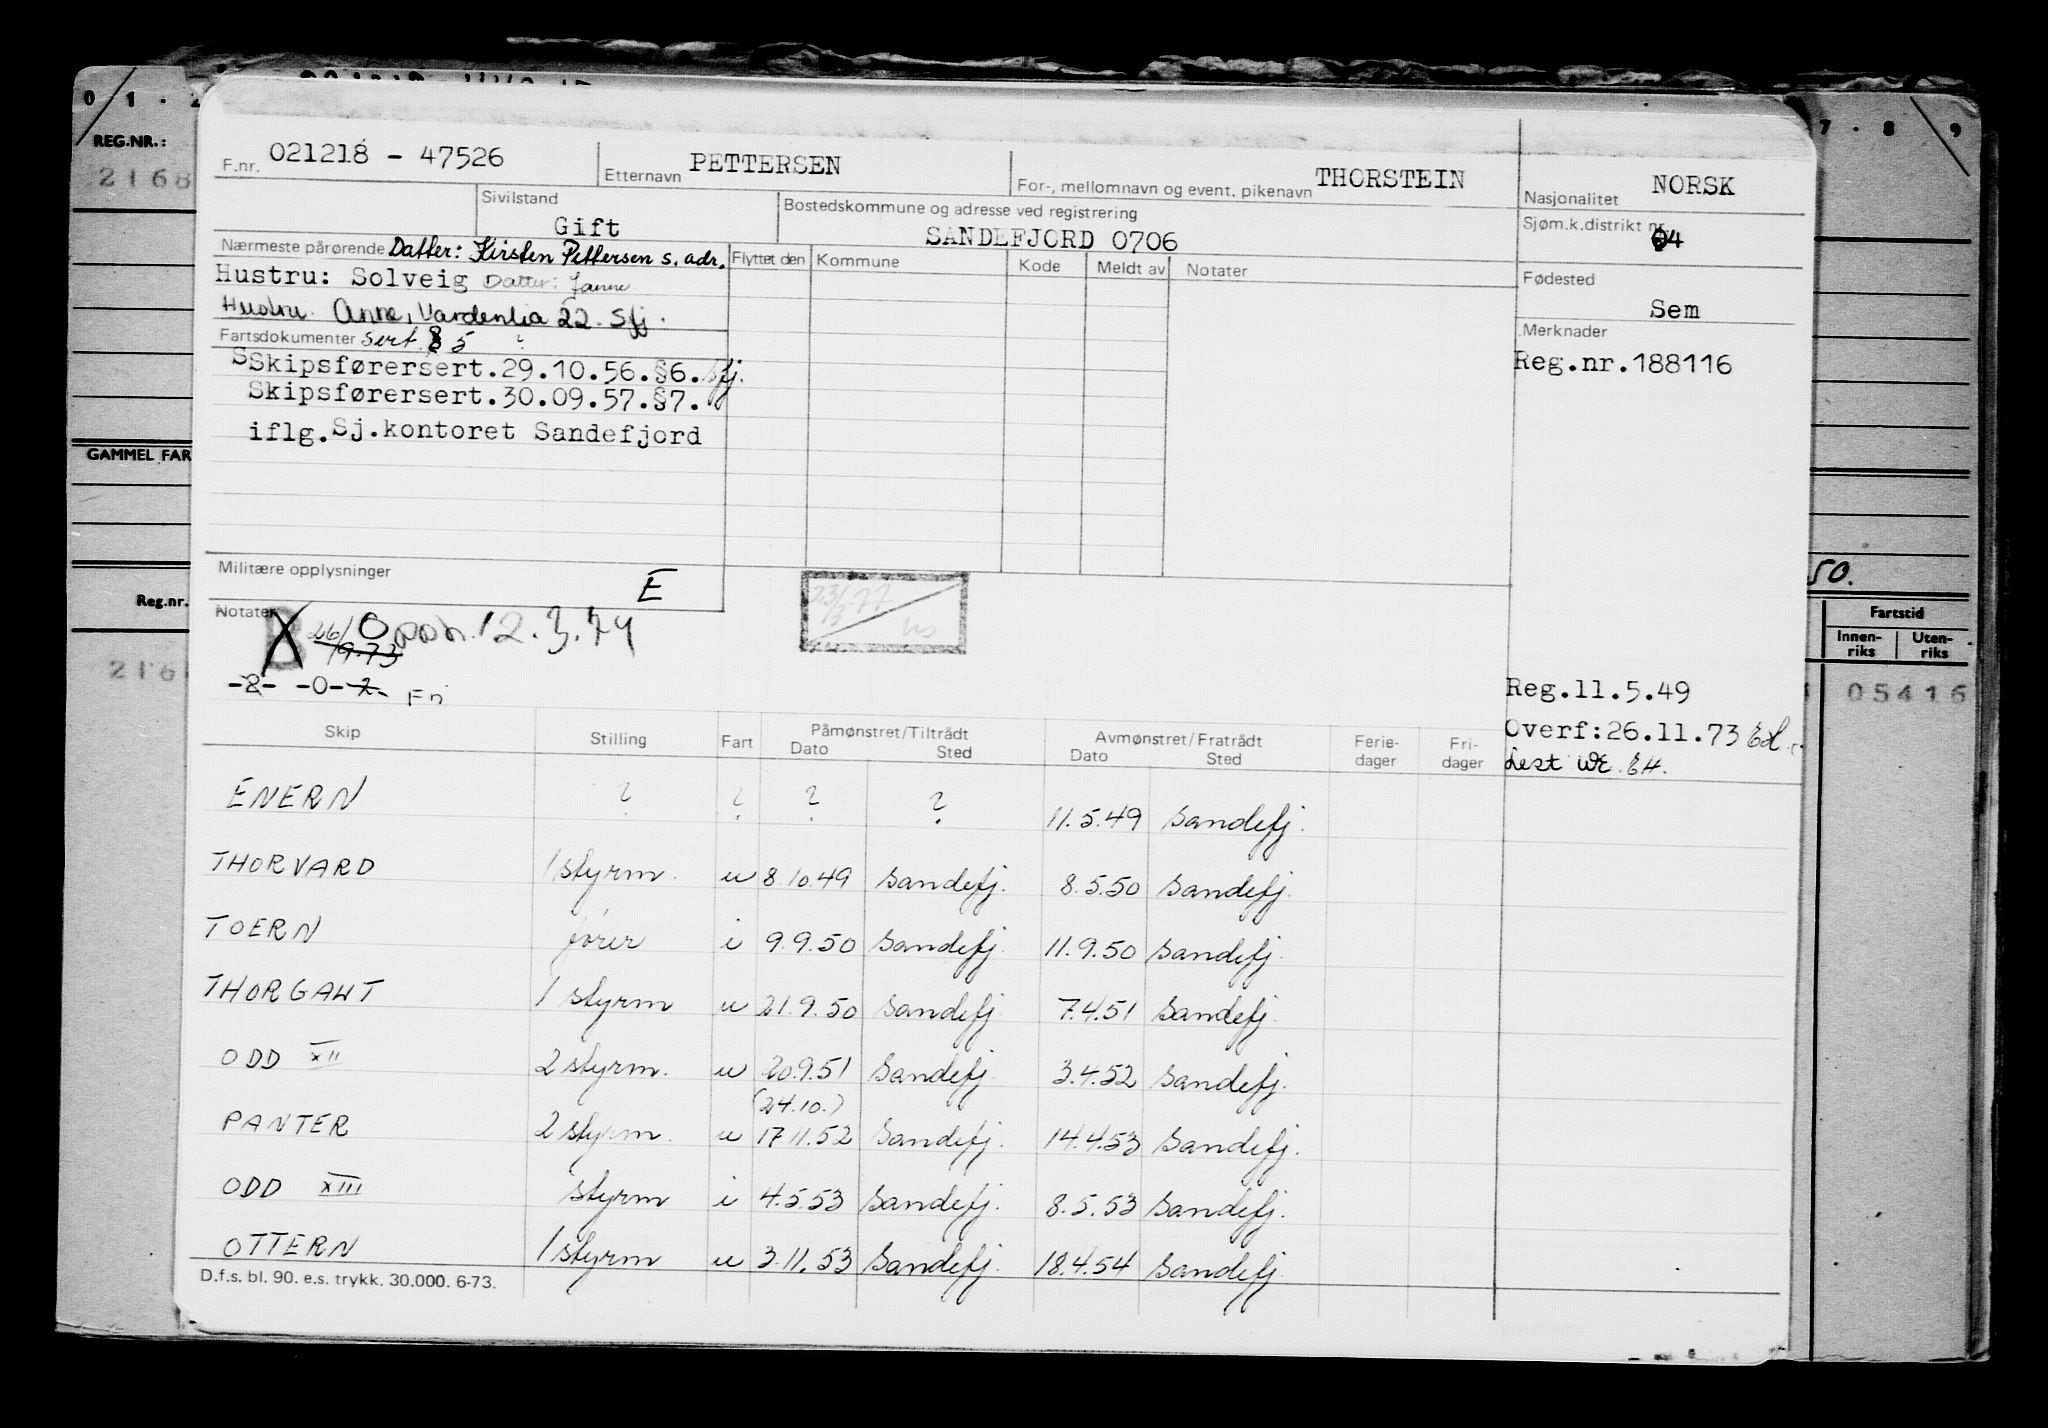 0 1 · 2
7 · 8 9
REG.NR.:
2168
GAMMEL FAR
Reg.nr.
216
50.
Fartstid
Innen-riks Uten-riks
05416
F.nr. 021218 - 47526 Etternavn PETTERSEN For-, mellomnavn og event. pikenavn THORSTEIN Nasjonalitet NORSK
Sivilstand Gift Bostedskommune og adresse ved registrering SANDEFJORD 0706 Sjøm.k.distrikt nr. 04
Nærmeste pårørende Datter: Kirsten Pettersen s. adr. Flyttet den Kommune Kode Meldt av Notater Fødested Sem
Hustru: Solveig Datter: Janne
Hustru. Anne, Vardenlia 22. Sfj.
Merknader
Reg.nr.188116
Fartsdokumenter sert. § 5
Skipsførersert.29.10.56.§6. Sfj.
Skipsførersert.30.09.57.§7.
iflg.Sj.kontoret Sandefjord
Militære opplysninger E
Notater B 26/ 9.73 O opph. 12.3.74
23/3 77
-8- -0-2- Fri
Reg.11.5.49
Overf:26.11.73 EH.
Lest WE. EH.
Skip Stilling Fart Påmønstret/Tiltrådt Dato Sted Avmønstret/Fratrådt Dato Sted Ferie-dager Fri-dager
ENERN ? ? ? ? 11.5.49 Sandefj.
THORVARD 1 styrm. u 8.10.49 Sandefj. 8.5.50 Sandefj.
TOERN fører i 9.9.50 Sandefj. 11.9.50 Sandefj.
THORGAUT 1 styrm u 21.9.50 Sandefj. 7.4.51 Sandefj.
ODD XII 2 styrm. u 20.9.51 Sandefj. 3.4.52 Sandefj.
PANTER 2 styrm. u (24.10.) 17.11.52 Sandefj. 14.4.53 Sandefj.
ODD XIII styrm i 4.5.53 Sandefj. 8.5.53 Sandefj.
OTTERN 1 styrm u 3.11.53 Sandefj. 18.4.54 Sandefj.
D.f.s. bl. 90. e.s. trykk. 30.000. 6-73.